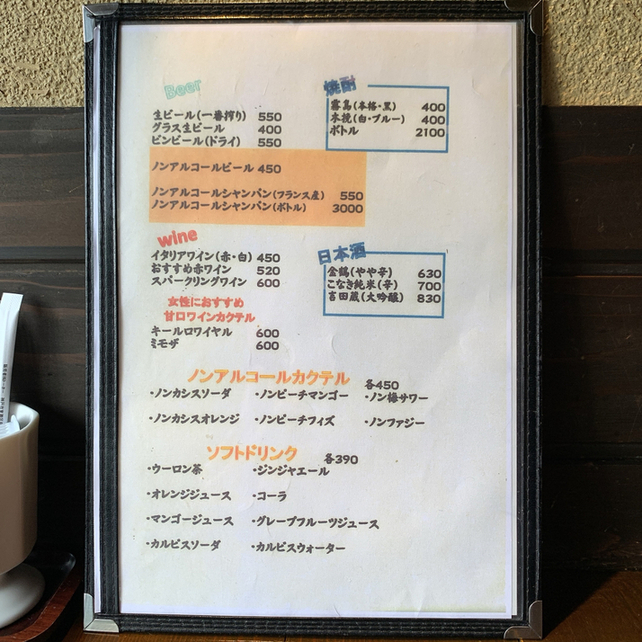 Beer
生ビール(一番搾り) 550
グラス生ビール 400
ビンビール(ドライ) 550
ノンアルコールビール 450
ノンアルコールシャンパン(フランス産) 550
ノンアルコールシャンパン(ボトル) 3000
焼酎
霧島(本格・黒) 400
木挽(白・ブルー) 400
ボトル 2100
wine
イタリアワイン(赤・白) 450
おすすめ赤ワイン 520
スパークリングワイン 600
女性におすすめ
甘口ワインカクテル
キールロワイヤル 600
ミモザ 600
日本酒
金鶴(やや辛) 630
こなき純米(辛) 700
吉田蔵(大吟醸) 830
ノンアルコールカクテル 各450
・ノンカシスソーダ ・ノンピーチマンゴー ・ノン梅サワー
・ノンカシスオレンジ ・ノンピーチフィズ ・ノンファジー
ソフトドリンク 各390
・ウーロン茶 ・ジンジャエール
・オレンジジュース ・コーラ
・マンゴージュース ・グレープフルーツジュース
・カルピスソーダ ・カルピスウォーター